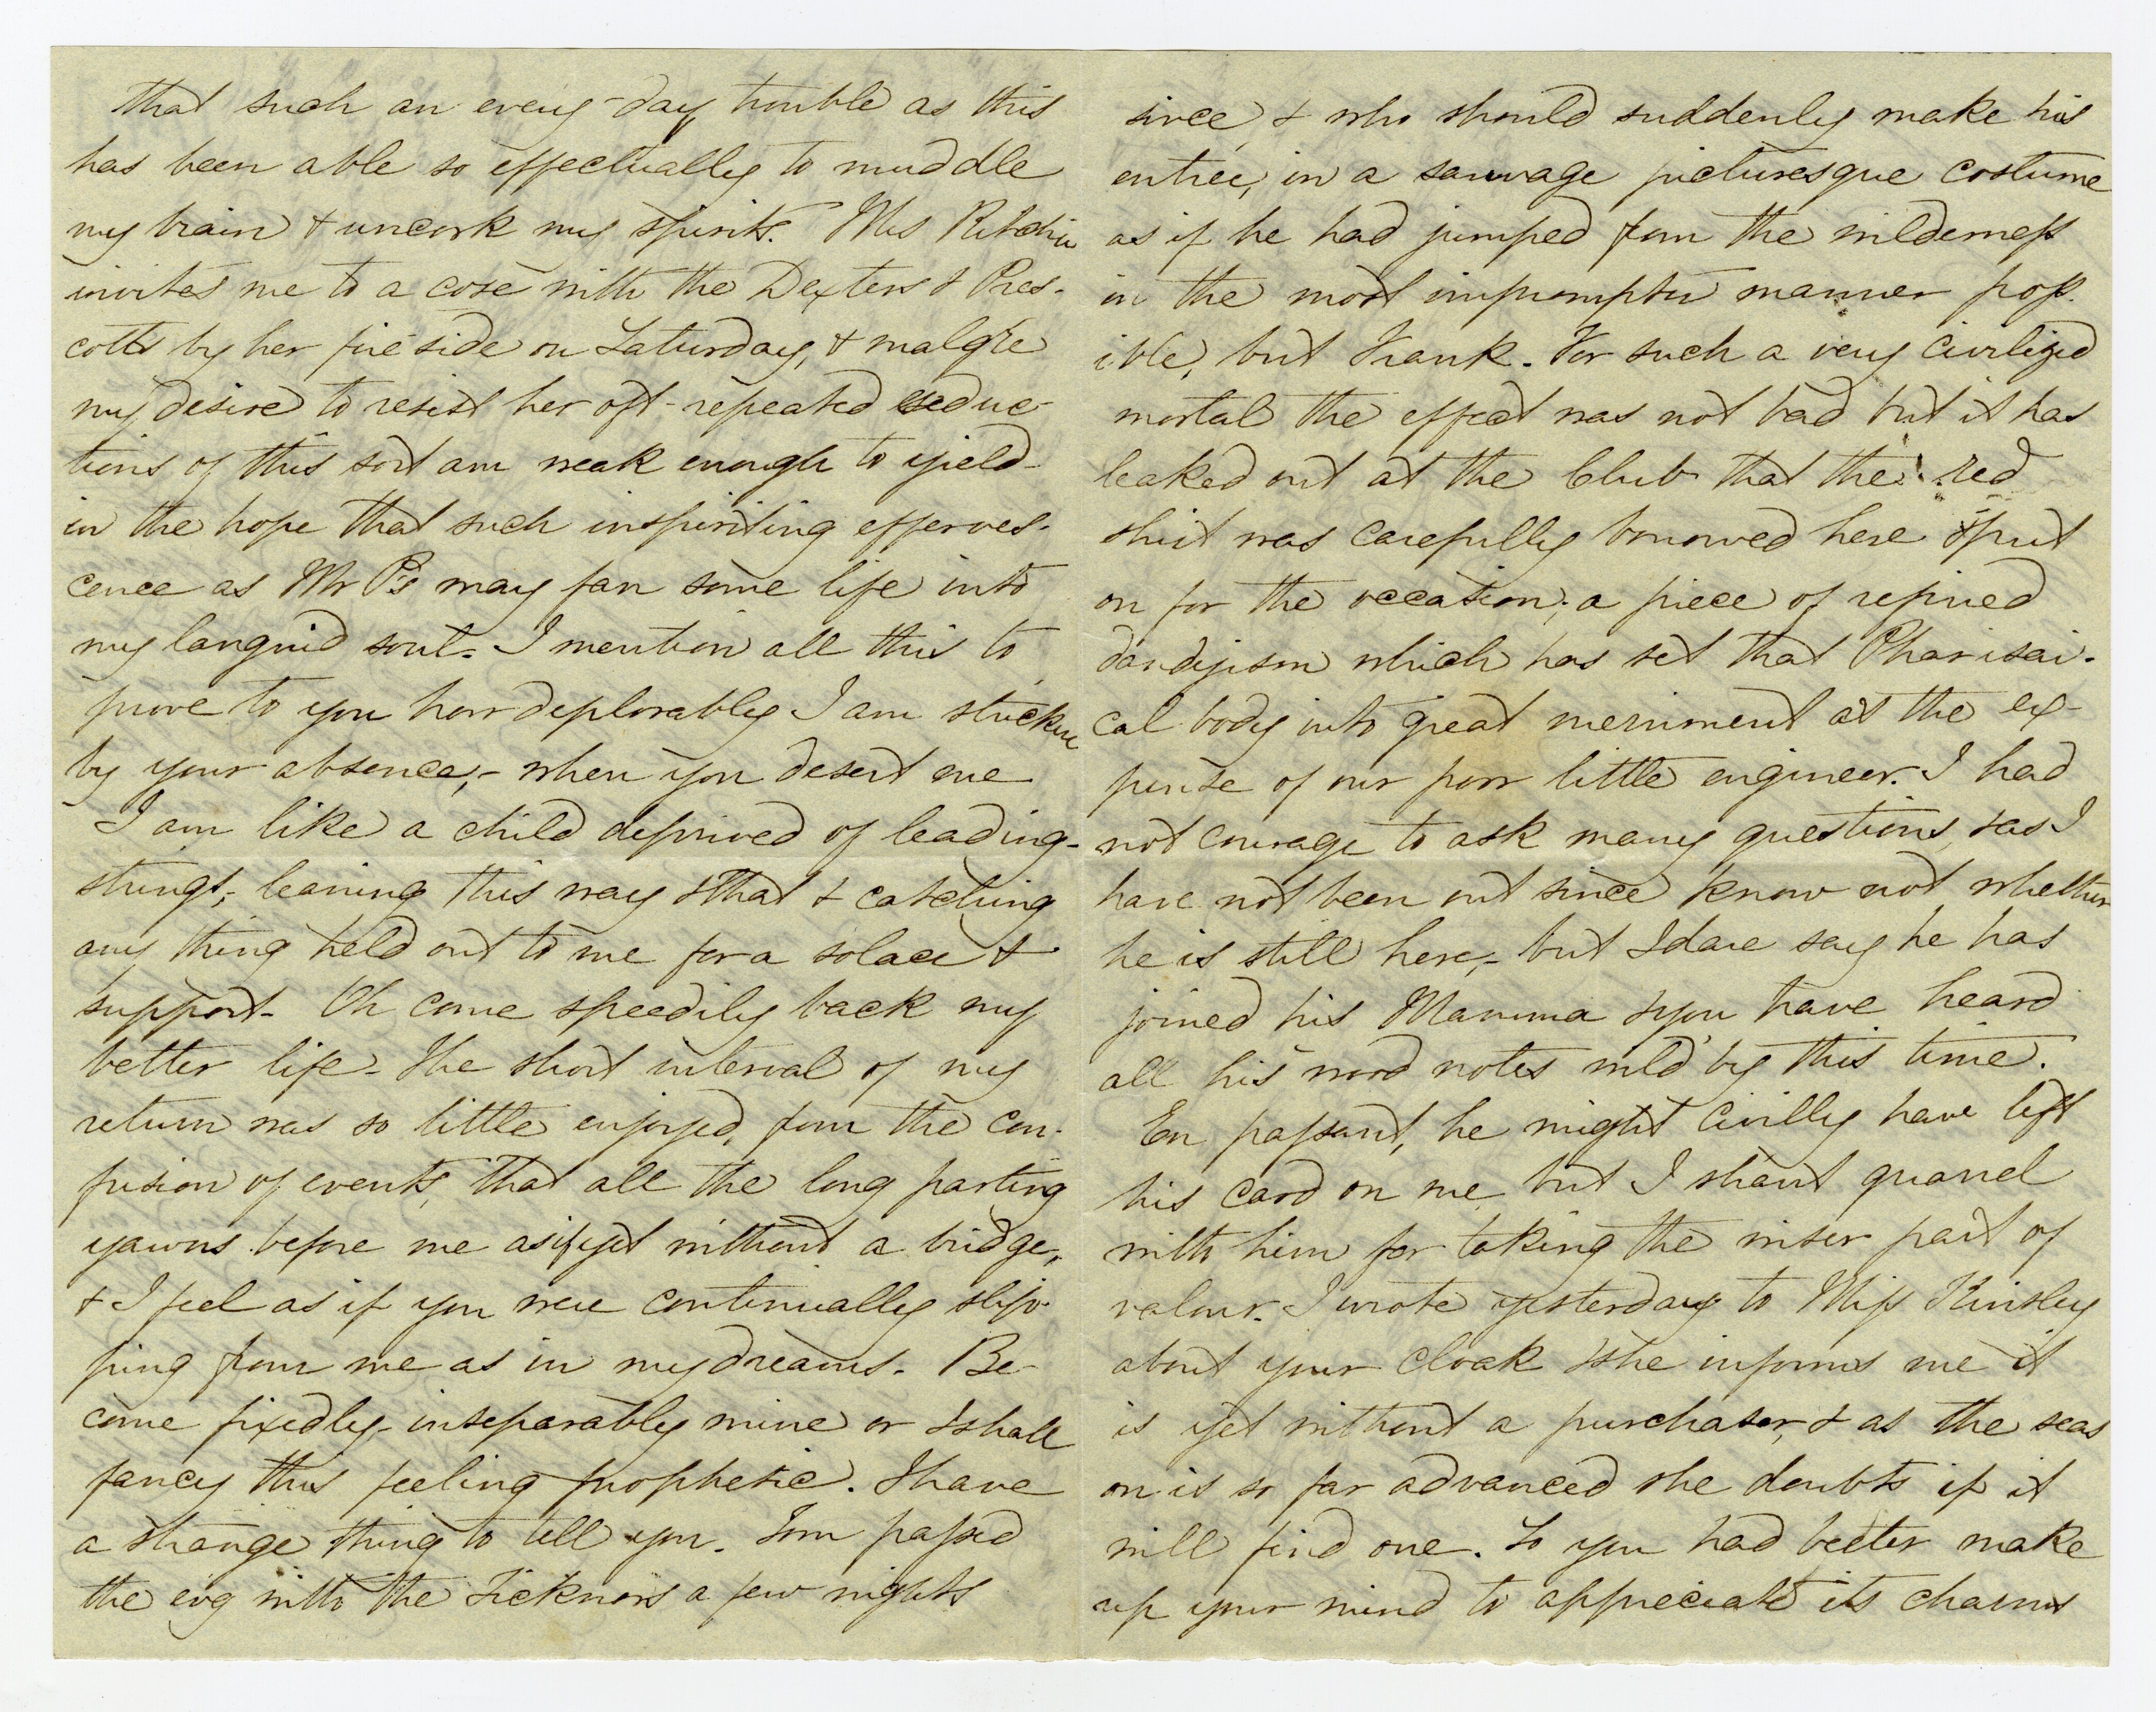 that such an every-day trouble as this
has been able so effectually to muddle
my brain & uncork my spirits. Mrs Ritchie
invites me to a cose with the Dexters & Pres-
cotts by her fire side on Saturday, & malgré
my desire to resist her oft-repeated seduc-
tions of this sort am weak enough to yield
in the hope that such inspiriting efferves-
cence as Mr P's may fan some life into
my languid soul. I mention all this to
prove to you how deplorably I am stricken
by your absence,- when you desert me
I am like a child deprived of leading-
strings, leaning this way & that & catching
any thing held out to me for a solace &
support- Oh come speedily back my
better life- The short interval of my
return was so little enjoyed, from the con-
fusion of events, that all the long parting
yawns before me as if yet without a bridge,
& I feel as if you were continually slip-
ping from me as in my dreams. Be-
come fixedly- inseparably mine or I shall
fancy this feeling prophetic. I have
a strange thing to tell you. Tom passed
the evg with the Ticknors a few nights
since, & who should suddenly make his
entrée, in a sauvage picturesque costume
as if he had jumped from the wilderness
in the most impromptu manner poss-
ible, but Frank. For such a very civilized
mortal the effect was not bad but it has
leaked out at the Club that the red
shirt was carefully borrowed here & put
on for the occasion; a piece of refined
dandyism which has set that Pharisai-
cal body into great merriment at the ex-
pense of our poor little engineer. I had
not courage to ask many questions, & as I
have not been out since know not whether
he is still here,- but I dare say he has
joined his Mamma & you have heard
all his wood notes wild by this time.
En passant, he might civilly have left
his card on me, but I shan't quarrel
with him for taking the wiser part of
valour. I wrote yesterday to Miss Kinsley
about your cloak & she informs me it
is yet without a purchaser, & as the seas
on is so far advanced she doubts if it
will find one. So you had better make
up your mind to appreciate its charms